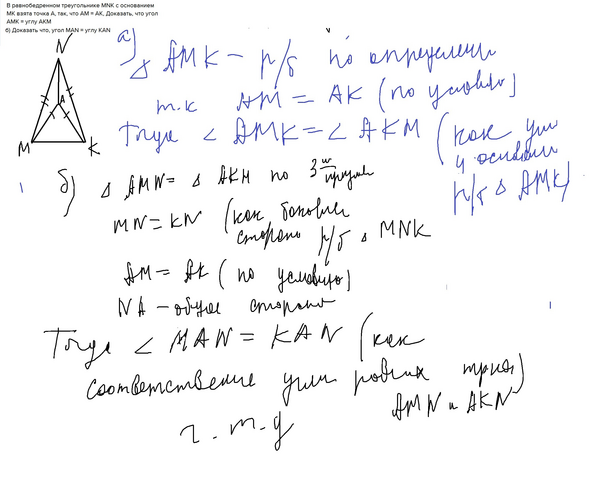 В равнобедренном треугольнике MNK с основанием
МК взята точка А, так, что АМ = АК. Доказать, что угол
АМК = углу АКМ
б) Доказать что, угол MAN = углу KAN
N
A
M
K
а)
△ AMK – р/б по определени
т.к AM = AK (по условию)
Тогда ∠ AMK = ∠ AKM (как углы
у основани
р/б △ AMK)
б)
△ AMN = △ AKN по 3му призн
MN = KN (как боковые
стороны р/б △ MNK
AM = AK (по условию)
NA – общая сторона
Тогда ∠ MAN = KAN (как
соответствение углы равных треуг)
AMN и AKN
ч.т.д